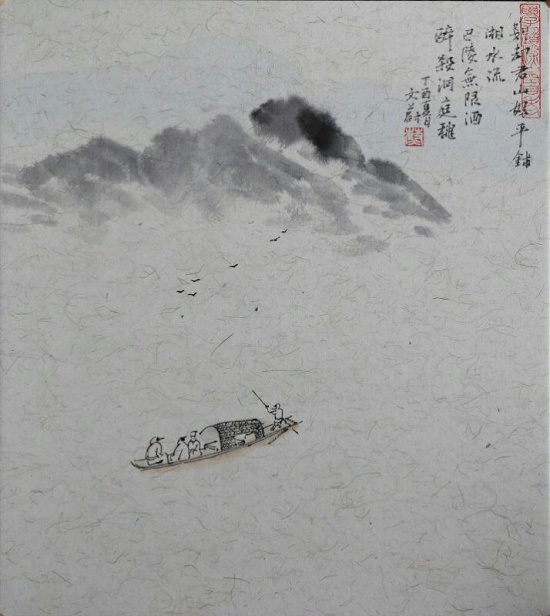 剗却君山好平鋪
湘水流
巴陵無限酒
醉殺洞庭穐
丁酉夏日
文蔚